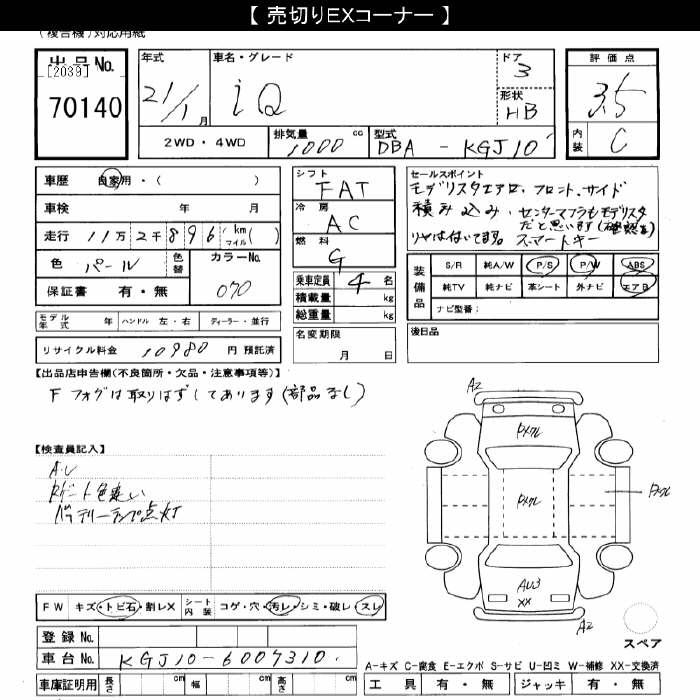 【 売切りEXコーナー 】
(複合機)対応用紙
出品No.
[2039]
70140
年式
21/1月
車名・グレード
iQ
ドア
3
形状
HB
評価点
3.5
内装
C
2WD・4WD
排気量
1000 cc
型式
DBA - KGJ10
車歴 自家用・( )
車検 年 月
走行 11万2千896 km マイル ( )
色 パール
色替
カラーNo.
070
保証書 有・無
モデル年式 年 ハンドル 左・右 ディーラー・並行
リサイクル料金 10980 円 預託済
シフト
FAT
冷房
AC
燃料
G
乗車定員 4 名
積載量 kg
総重量 kg
名変期限
月 日
セールスポイント
モデリスタエアロ、フロント、サイド
積み込み、センターマフラもモデリスタ
だと思います(確認を)
リヤは付いてます。スマートキー
装備品
S/R 純A/W P/S P/W ABS
純TV 純ナビ 革シート 外ナビ エアB
ナビ型番:
後日品
【出品店申告欄(不良箇所・欠品・注意事項等)】
F フォグは取りはずしてあります(部品なし)
【検査員記入】
A・U
Rゲート色違い
バッテリーランプ点灯
FW キズ・トビ石・割レX シート内装 コゲ・穴・汚レ・シミ・破レ・スレ
登録No.
車台No. KGJ10-6007310
車庫証明用 長さ cm 幅 cm 高さ cm
A2
A2
AU3
XX
スペア
A-キズ C-腐食 E-エクボ S-サビ U-凹ミ W-補修 XX-交換済
工具 有・無 ジャッキ 有・無